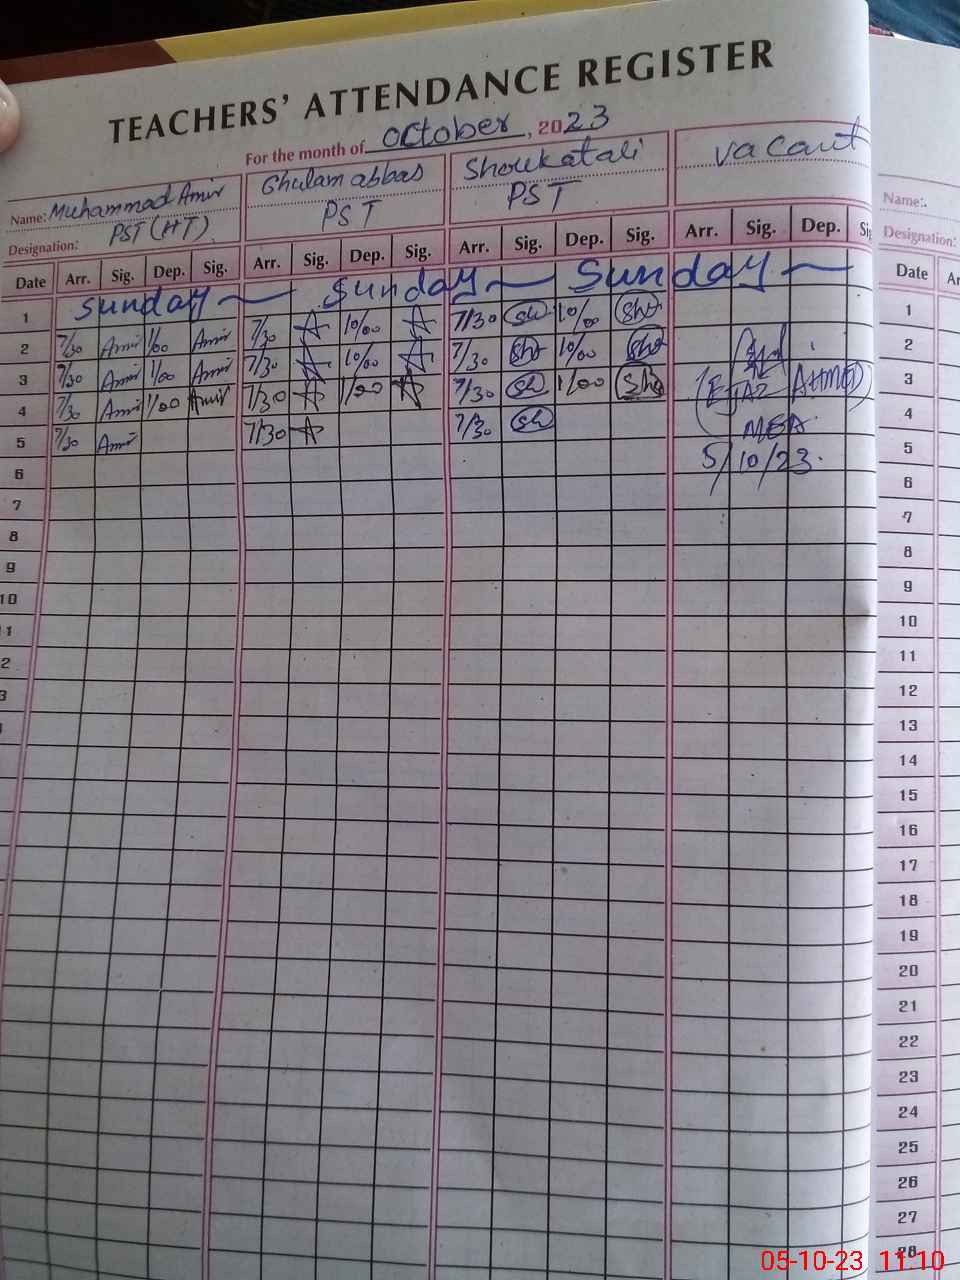 TEACHERS' ATTENDANCE REGISTER
For the month of October, 2023
Name: Muhammad Amir Ghulam abbas Shoukat ali vacant
Designation: PST (HT) PST PST
Date Arr. Sig. Dep. Sig. Arr. Sig. Dep. Sig. Arr. Sig. Dep. Sig. Arr. Sig. Dep. Sig
1 Sunday Sunday Sunday
2 7/30 Amir 1/00 Amir 7/30 10/00 7/30 Sh 10/00 Sht
3 7/30 Amir 1/00 Amir 7/30 10/00 7/30 Sht 10/00 Sht
4 7/30 Amir 1/00 Amir 7/30 1/00 7/30 Sh 1/00 Sht
5 7/30 Amir 7/30 7/30 Sh
(EJAZ AHMED)
MEA
5/10/23.
6
7
8
9
10
11
2
3
Name:
Designation:
Date Ar
1
2
3
4
5
6
7
8
9
10
11
12
13
14
15
16
17
18
19
20
21
22
23
24
25
26
27
28
05-10-23 11:10